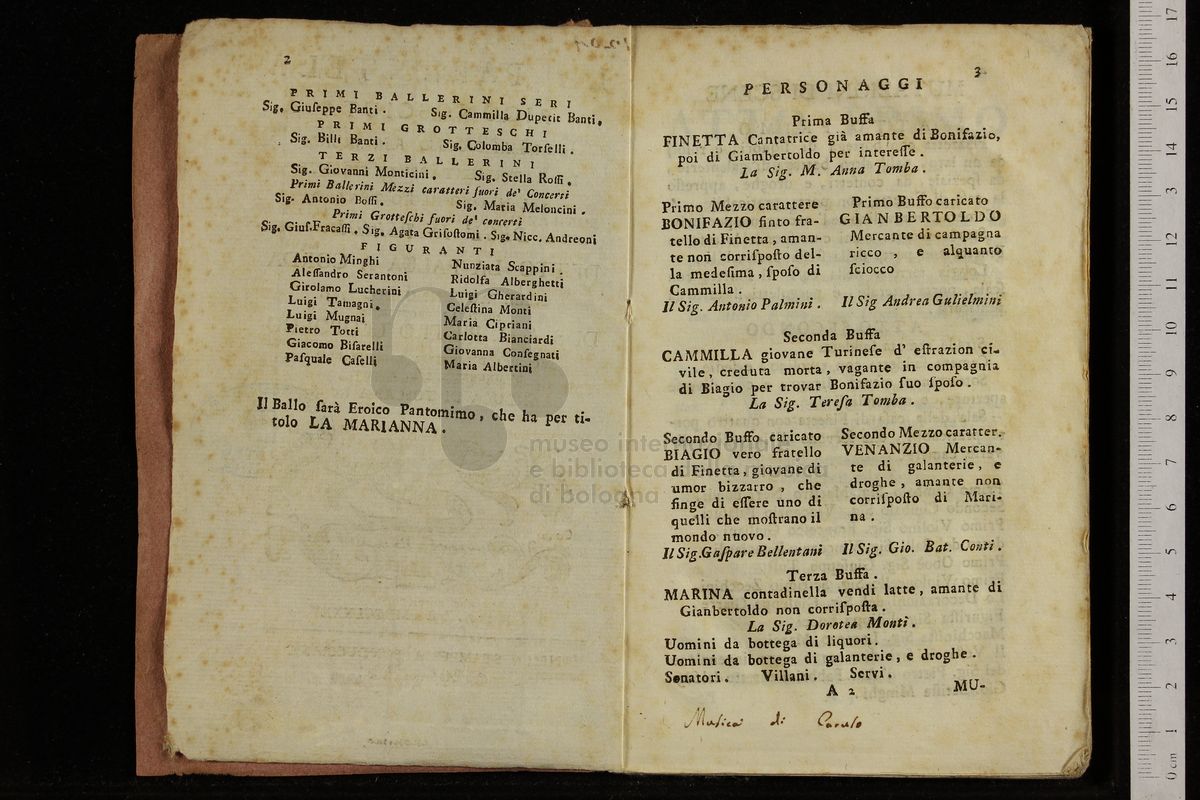 2
PRIMI BALLERINI SERI
Sig. Giuſeppe Banti . Sig. Cammilla Dupetit Banti.
PRIMI GROTTESCHI
Sig. Billi Banti . Sig. Colomba Torſelli .
TERZI BALLERINI
Sig. Giovanni Monticini . Sig. Stella Roſſi .
Primi Ballerini Mezzi caratteri fuori de' Concerti
Sig. Antonio Boſſi . Sig. Maria Meloncini .
Primi Grotteſchi fuori de' concerti
Sig. Giuſ.Fracaſſi . Sig. Agata Griſoſtomi . Sig. Nicc. Andreoni
FIGURANTI
Antonio Minghi
Aleſſandro Serantoni
Girolamo Lucherini
Luigi Tamagni.
Luigi Mugnai
Pietro Totti
Giacomo Biſarelli
Paſquale Caſelli
Nunziata Scappini .
Ridolfa Alberghetti
Luigi Gherardini
Celeſtina Monti
Maria Cipriani
Carlotta Bianciardi
Giovanna Conſegnati
Maria Albertini
Il Ballo ſarà Eroico Pantomimo , che ha per ti-
tolo LA MARIANNA .
3
PERSONAGGI
Prima Buffa
FINETTA Cantatrice già amante di Bonifazio,
poi di Giambertoldo per intereſſe .
La Sig. M. Anna Tomba .
Primo Mezzo carattere
BONIFAZIO finto fra-
tello di Finetta , aman-
te non corriſpoſto del-
la medeſima , ſpoſo di
Cammilla .
Il Sig. Antonio Palmini .
Primo Buffo caricato
GIANBERTOLDO
Mercante di campagna
ricco , e alquanto
ſciocco
Il Sig Andrea Gulielmini
Seconda Buffa
CAMMILLA giovane Turineſe d' eſtrazion ci-
vile , creduta morta , vagante in compagnia
di Biagio per trovar Bonifazio ſuo ſpoſo .
La Sig. Tereſa Tomba .
Secondo Buffo caricato
BIAGIO vero fratello
di Finetta , giovane di
umor bizzarro , che
finge di eſſere uno di
quelli che moſtrano il
mondo nuovo .
Il Sig.Gaſpare Bellentani
Secondo Mezzo caratter.
VENANZIO Mercan-
te di galanterie , e
droghe , amante non
corriſpoſto di Mari-
na .
Il Sig. Gio. Bat. Conti .
Terza Buffa .
MARINA contadinella vendi latte , amante di
Gianbertoldo non corriſpoſta .
La Sig. Dorotea Monti .
Uomini da bottega di liquori .
Uomini da bottega di galanterie , e droghe .
Senatori . Villani . Servi .
A 2 MU-
Musica di Caruso
museo internazionale
e biblioteca
di bologna
0 cm 1 2 3 4 5 6 7 8 9 10 11 12 13 14 15 16 17